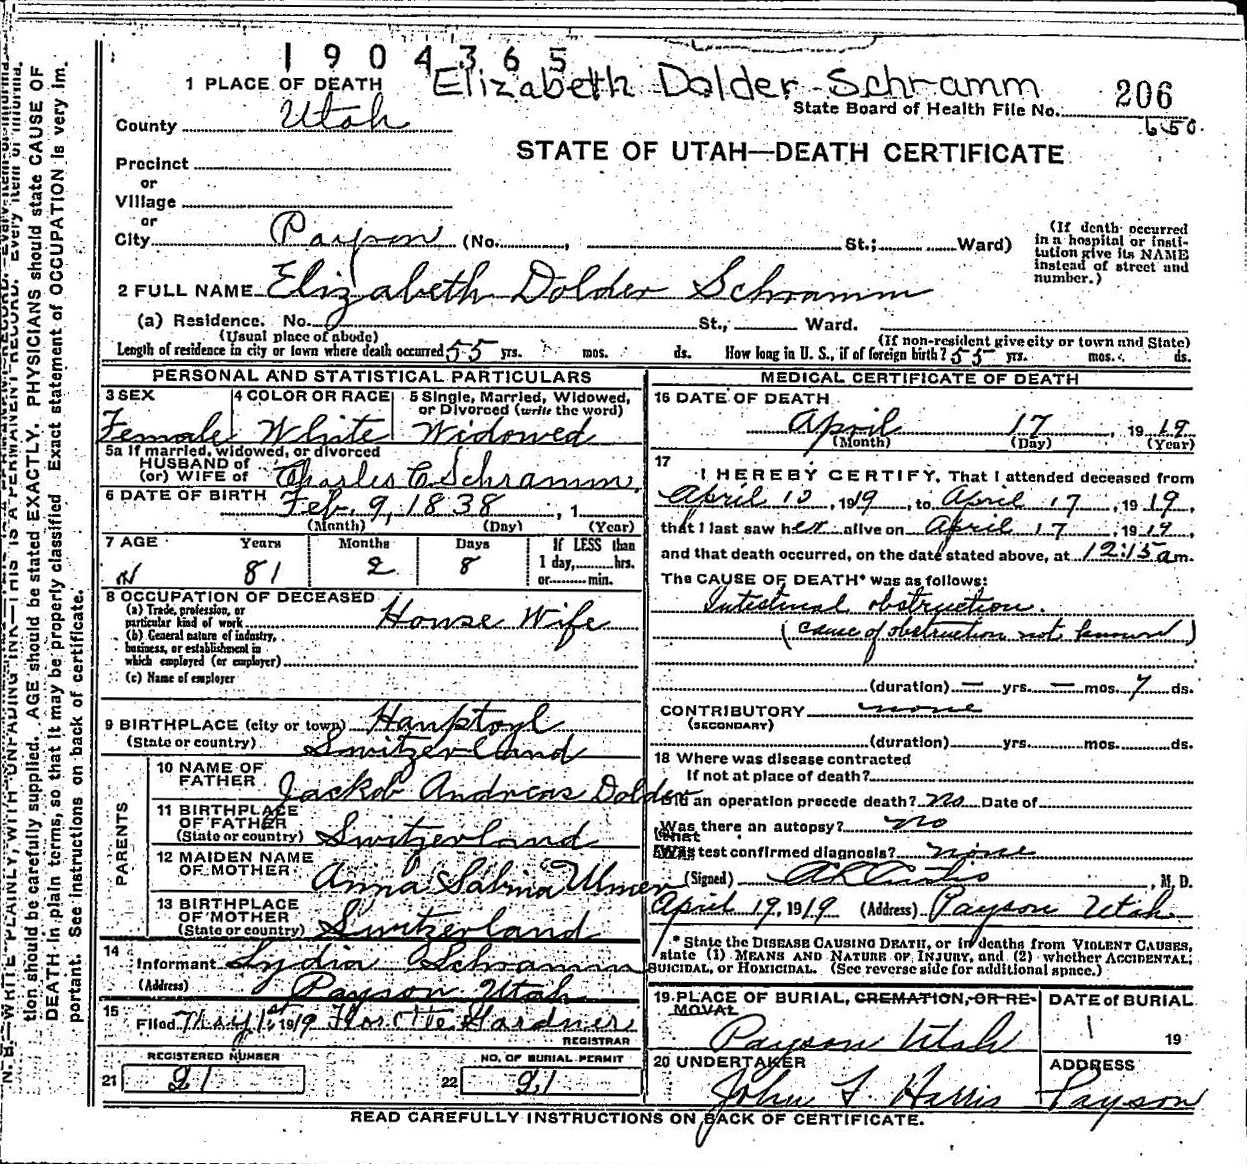 1904365
Elizabeth Dolder Schramm
1 PLACE OF DEATH
State Board of Health File No. 206
650.
County Utah
STATE OF UTAH—DEATH CERTIFICATE
Precinct
or
Village
or
City Payson (No. , St.; Ward)
(If death occurred in a hospital or insti-
tution give its NAME instead of street and number.)
2 FULL NAME Elizabeth Dolder Schramm
(a) Residence. No. St., Ward.
(Usual place of abode) (If non-resident give city or town and State)
Length of residence in city or town where death occurred 55 yrs. mos. ds. How long in U. S., if of foreign birth? 55 yrs. mos. ds.
PERSONAL AND STATISTICAL PARTICULARS
3 SEX 4 COLOR OR RACE 5 Single, Married, Widowed, or Divorced (write the word)
Female White Widowed
5a If married, widowed, or divorced
HUSBAND of
(or) WIFE of Charles C. Schramm.
6 DATE OF BIRTH Feb. 9, 1838, 1
(Month) (Day) (Year)
7 AGE Years Months Days If LESS than
81 2 8 1 day, hrs.
or min.
8 OCCUPATION OF DECEASED
(a) Trade, profession, or
particular kind of work House Wife
(b) General nature of industry,
business, or establishment in
which employed (or employer)
(c) Name of employer
9 BIRTHPLACE (city or town) Hauptoyl
(State or country) Switzerland
PARENTS
10 NAME OF
FATHER Jackob Andreas Dolder
11 BIRTHPLACE
OF FATHER
(State or country) Switzerland
12 MAIDEN NAME
OF MOTHER Anna Sabina Ulmer
13 BIRTHPLACE
OF MOTHER
(State or country) Switzerland
14
Informant Lydia Schramm
(Address) Payson Utah
15
Filed May 1st, 1919 Gardner
REGISTRAR
REGISTERED NUMBER NO. OF BURIAL PERMIT
21 21 22 21
MEDICAL CERTIFICATE OF DEATH
16 DATE OF DEATH
April 17, 1919
(Month) (Day) (Year)
17
I HEREBY CERTIFY, That I attended deceased from
April 10, 1919, to April 17, 1919,
that I last saw her alive on April 17, 1919,
and that death occurred, on the date stated above, at 12:15 am.
The CAUSE OF DEATH* was as follows:
Intestinal obstruction.
(cause of obstruction not known)
(duration) — yrs. — mos. 7 ds.
CONTRIBUTORY none
(SECONDARY)
(duration) yrs. mos. ds.
18 Where was disease contracted
If not at place of death?
Did an operation precede death? no Date of
Was there an autopsy? no
What test confirmed diagnosis? none
(Signed) A L Curtis, M. D.
April 19, 1919 (Address) Payson Utah
* State the DISEASE CAUSING DEATH, or in deaths from VIOLENT CAUSES,
state (1) MEANS AND NATURE OF INJURY, and (2) whether ACCIDENTAL,
SUICIDAL, or HOMICIDAL. (See reverse side for additional space.)
19 PLACE OF BURIAL, CREMATION, OR RE-
MOVAL
Payson Utah
DATE of BURIAL
19
20 UNDERTAKER
John F Harris
ADDRESS
Payson
READ CAREFULLY INSTRUCTIONS ON BACK OF CERTIFICATE.
N. B.—WRITE PLAINLY, WITH UNFADING INK—THIS IS A PERMANENT RECORD. Every item of informa-
tion should be carefully supplied. AGE should be stated EXACTLY. PHYSICIANS should state CAUSE OF
DEATH in plain terms, so that it may be properly classified. Exact statement of OCCUPATION is very im-
portant. See instructions on back of certificate.